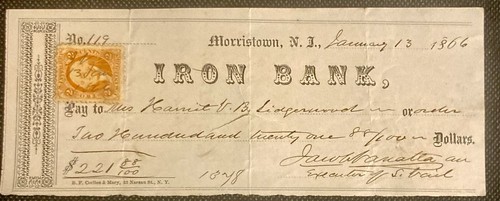 No. 119 Morristown, N. J., January 13 1866
IRON BANK,
Pay to Mrs Harriet V. B. Lidgerwood or order
Two Hundred and twenty one 88/100 Dollars.
$221 88/100 1878 Jacob Vanatta
Executor of S. Vail